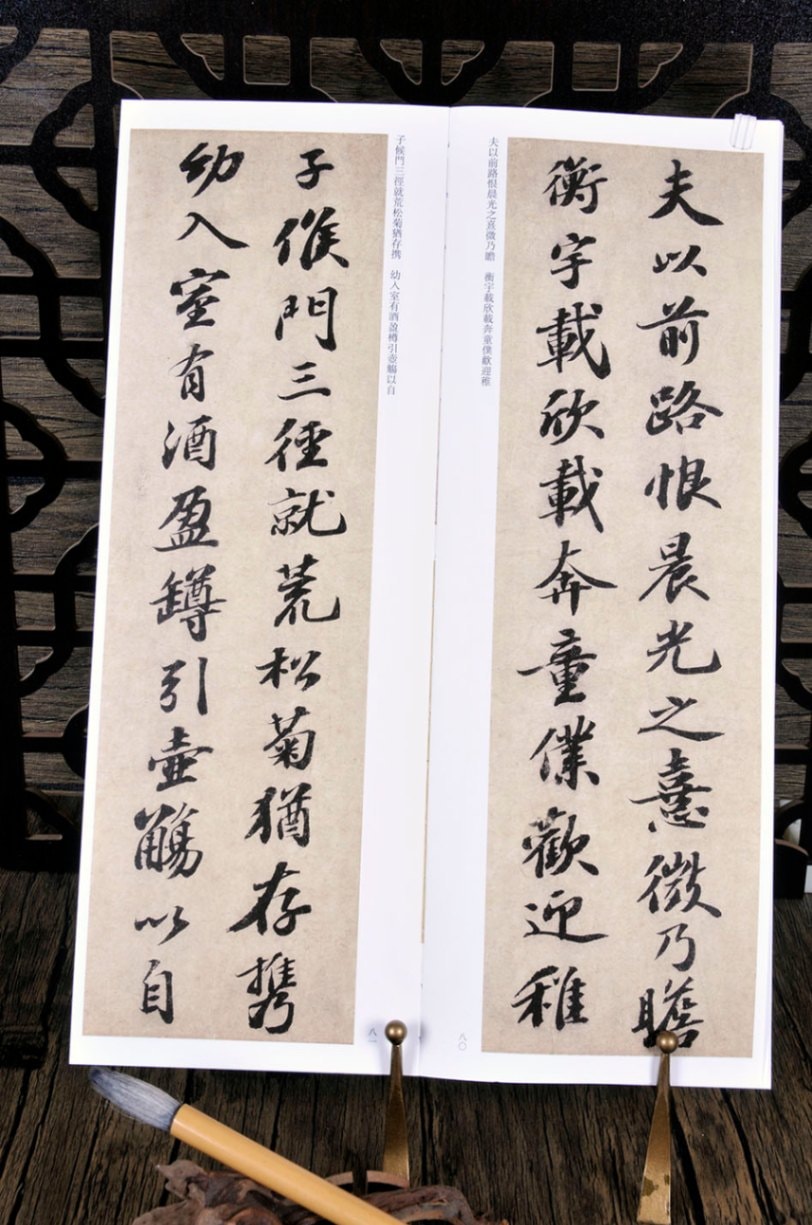 夫以前路恨晨光之熹微乃瞻
衡宇載欣載奔童僕歡迎稚
夫以前路恨晨光之熹微乃瞻　衡宇載欣載奔童僕歡迎稚
八〇
子候門三徑就荒松菊猶存携
幼入室有酒盈罇引壺觴以自
子候門三徑就荒松菊猶存携　幼入室有酒盈樽引壺觴以自
八一